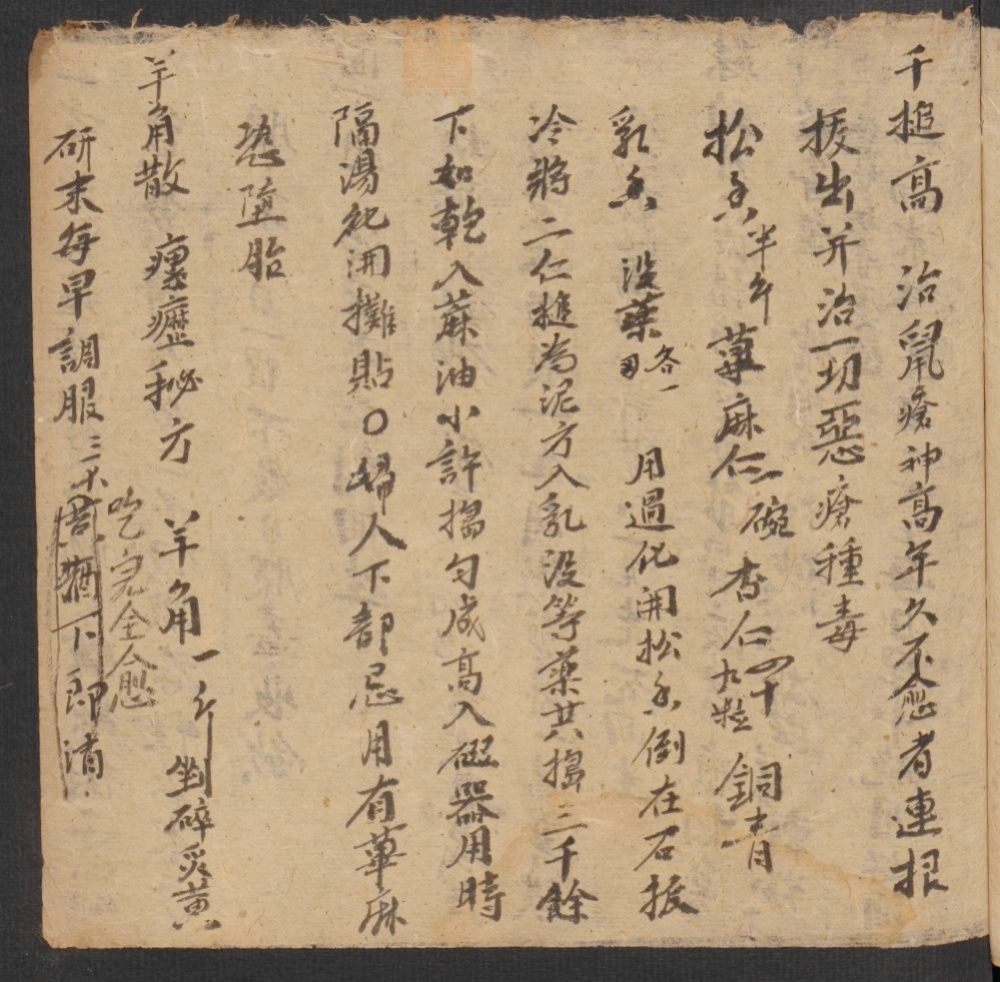 千槌高 治鼠瘡神高年久不愈者連根
拔出并治一切惡瘡種毒
松香半斤 萆麻仁一碗 杏仁四十九粒 銅青
乳香 沒藥各一 用過化開松香倒在石板
冷將二仁槌為泥方入乳沒等藥共搗三千餘
下如乾入蔴油小許搗勻成高入磁器用時
隔湯化開攤貼〇婦人下部忌用有萆麻
恐墮胎
羊角散 瘰癧秘方 羊角一斤 剉碎炙黃
研末每早調服三小 酒下即消
吃完全愈